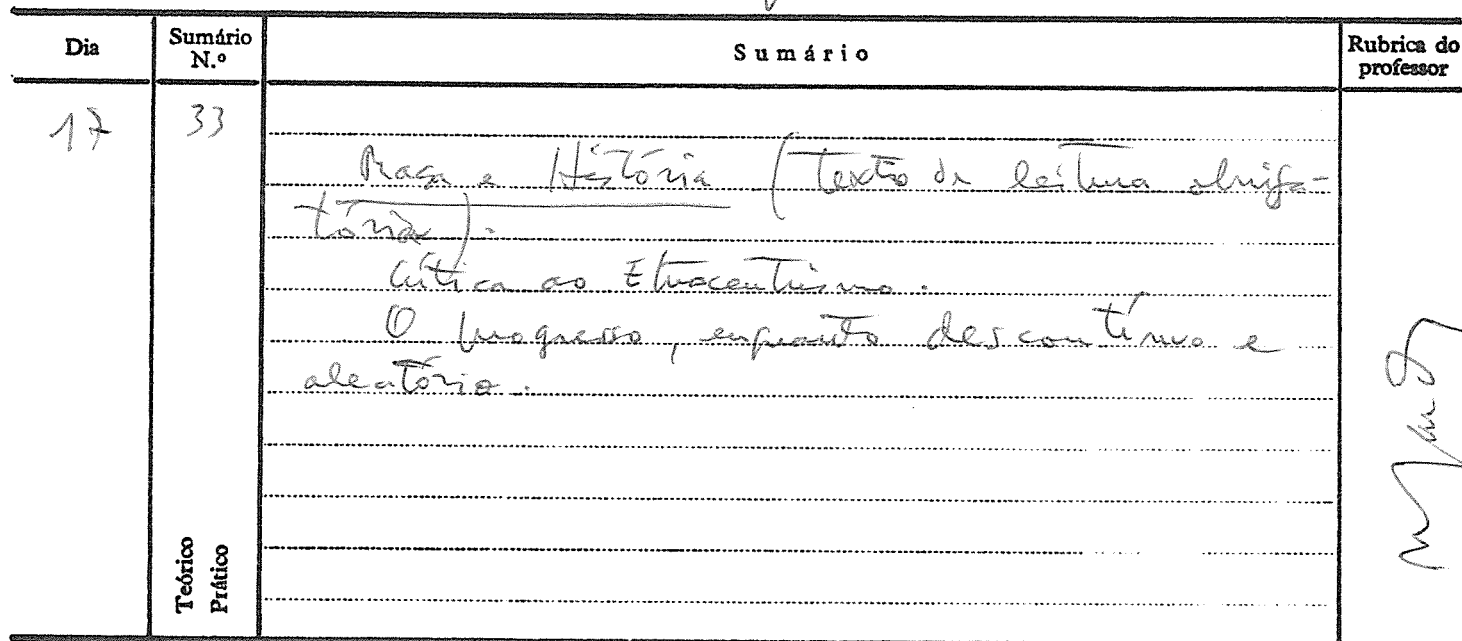 Dia
Sumário N.º
Sumário
Rubrica do professor
17
33
Raça e História (texto de leitura obriga-
tória).
Crítica ao Etnocentrismo.
O progresso, enquanto descontínuo e
aleatório.
Teórico
Prático